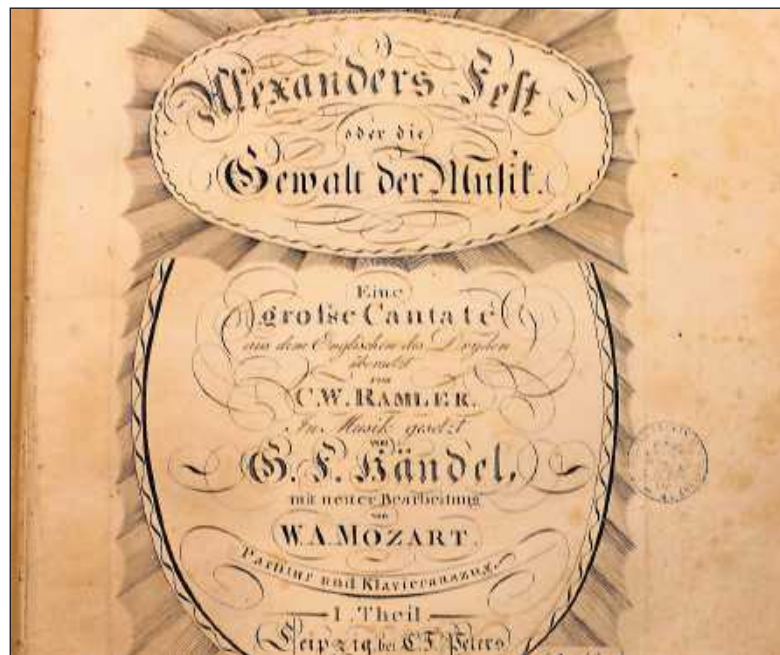 Alexanders Fest
oder die
Gewalt der Musik.
Eine
große Cantate
aus dem Englischen des Dryden
übersetzt
von
C. W. RAMLER.
In Musik gesetzt
von
G. F. Händel,
mit neuer Bearbeitung
von
W. A. MOZART.
Partitur und Klavierauszug.
I. Theil
Leipzig, bei C. F. Peters